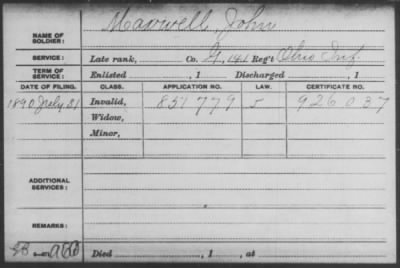 NAME OF SOLDIER: Maxwell John
SERVICE: Late rank, Co. G, 141 Reg't Ohio Inf.
TERM OF SERVICE: Enlisted , 1 Discharged , 1
DATE OF FILING. CLASS. APPLICATION NO. LAW. CERTIFICATE NO.
1890 July 31 Invalid, 857779 J 926037
Widow,
Minor,
ADDITIONAL SERVICES:
REMARKS:
Died , 1 , at